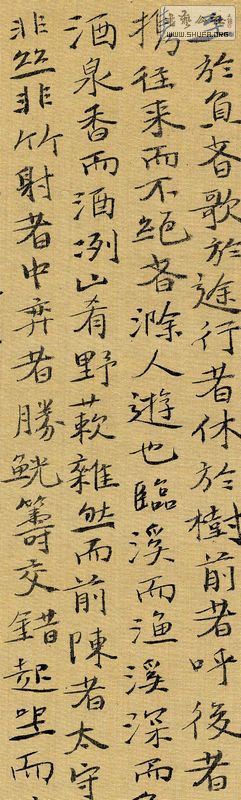 於負者歌於途行者休於樹前者呼後者
攜往來而不絕者滁人遊也臨溪而漁溪深而
酒泉香而酒冽山肴野蔌雜然而前陳者太守
非絲非竹射者中弈者勝觥籌交錯起坐而
WWW.SHUFA.ORG